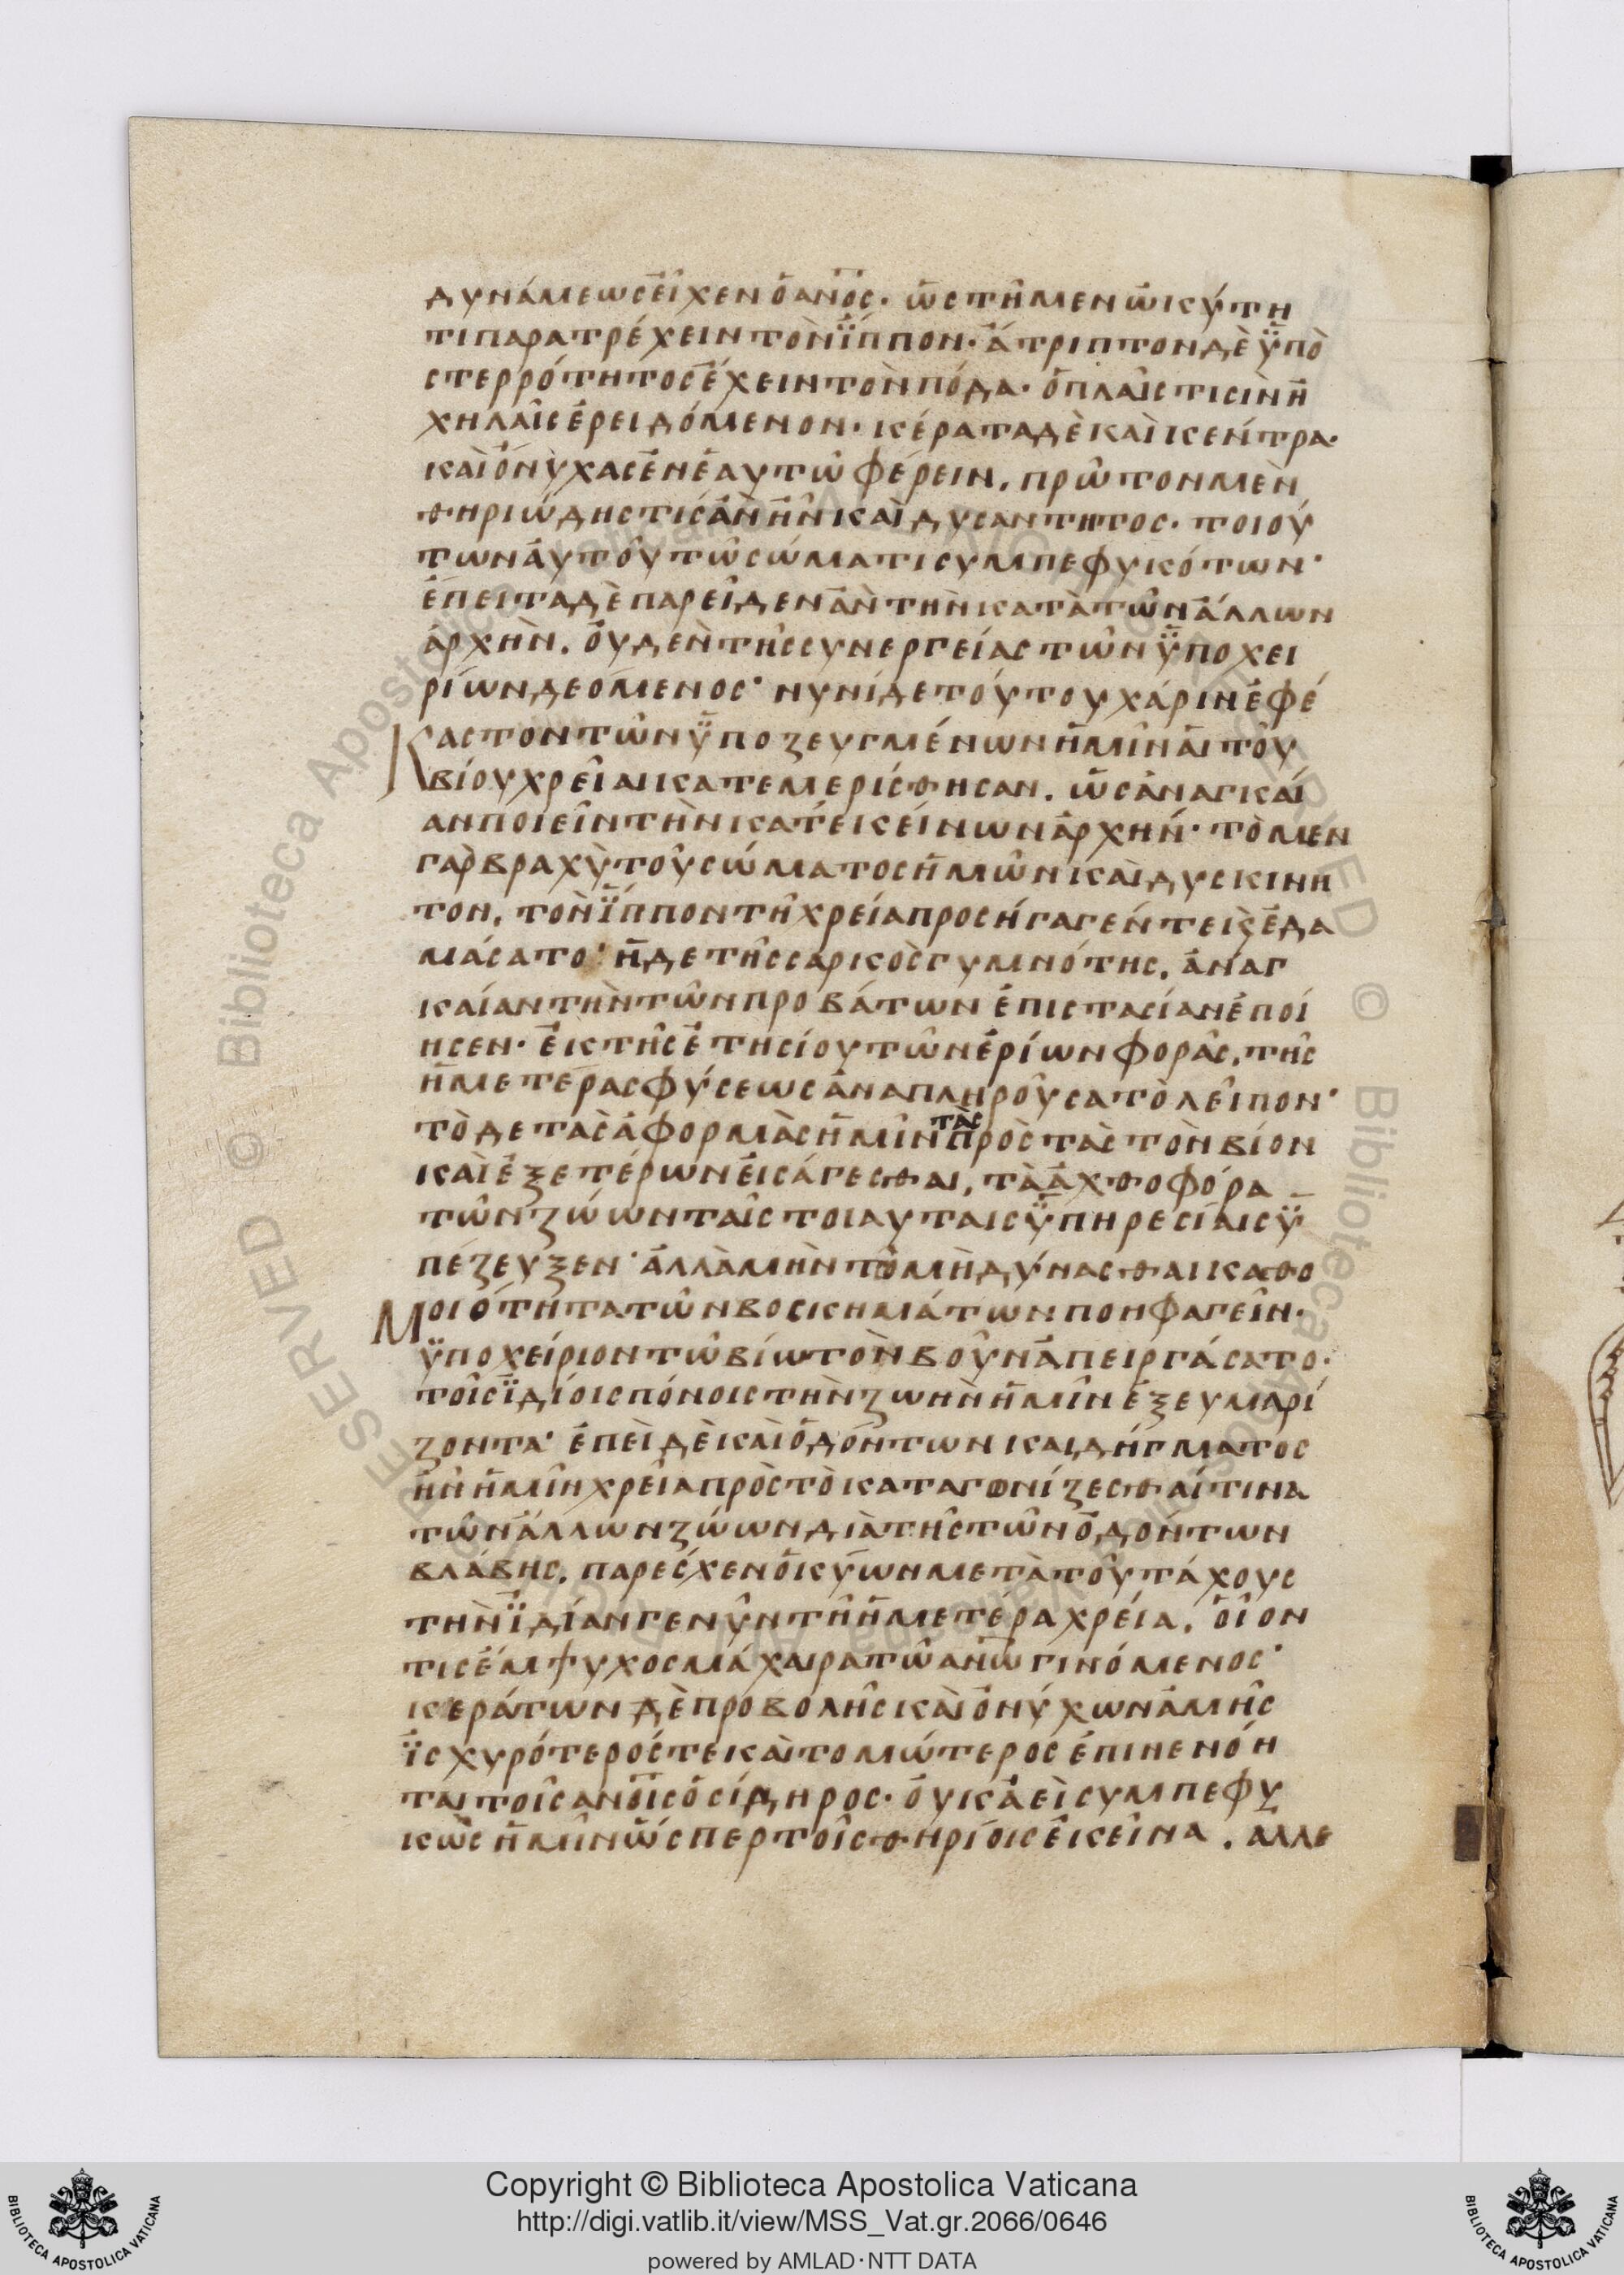 δυνάμεως εἶχεν ὁ ἀνος· ὡς τῆ μεν ὠκύτη
τι παρατρέχειν τὸν ἵππον· ἄτριπτον δὲ ὑπὸ
στερρότητος ἔχειν τὸν πόδα· ὁπλαῖς τισὶν ἢ
χηλαῖς ἐρειδόμενον· κέρατα δὲ καὶ κέντρα·
καὶ ὄνυχας ἐν ἑαυτῶ φέρειν. πρῶτον μὲν
θηριώδης τίς ἂν ἦν καὶ δυσαντητος· τοιού
των ἀυτοῦ τῶ σώματι συμπεφυκότων·
ἔπειτα δὲ παρεῖδεν ἂν τὴν κατὰ τῶν ἄλλων
ἀρχὴν. ὀυδὲν τῆς συνεργείας τῶν ὑποχει
ρίων δεόμενος· νυνὶ δε τούτου χάριν ἐφέ
Καστον τῶν ὑποζευγμένων ἡμῖν ἁι τοῦ
βίου χρεῖαι κατεμερίσθησαν. ὡς ἀναγκαί
αν ποιεῖν τὴν κατ' ἐκείνων ἀρχήν· τὸ μεν
γὰρ βραχὺ τοῦ σώματος ἡμῶν καὶ δυσκινη
τον, τὸν ἵππον τῆ χρεία προσήγαγέν τε κὶ ἐδα
μάσατο· ἡ δε τῆς σαρκὸς γυμνότης, ἀναγ
καίαν τὴν τῶν προβάτων ἐπιστασίαν ἐποί
ησεν· ἐκ τῆς ἐτησίου τῶν ἐρίων φορᾶς, τῆς
ἡμετέρας φύσεως ἀναπληροῦσα τὸ λεῖπον·
τὸ δε τὰς ἀφορμὰς ἡμῖν τὰς πρὸς τὰς τὸν βίον
καὶ ἐξ ετέρων ἐισάγεσθαι, τὰ ἀχθοφόρα
τῶν ζώων ταῖς τοιαυταις ὑπηρεσίαις ὑ
πέζευξεν· ἀλλὰ μὴν τὸ μὴ δύνασθαι καθο
Μοιότητα τῶν βοσκημάτων ποηφαγεῖν·
ὑποχείριον τῶ βίω τὸν βοῦν ἀπειργάσατο·
τοῖς ἰδίοις πόνοις τὴν ζωὴν ἡμῖν ἐξευμαρί
ζοντα· ἐπεὶ δὲ καὶ ὀδόντων και δήγματος
ἦν ἡμῖν χρεία πρὸς τὸ καταγωνίζεσθαί τινα
τῶν ἄλλων ζώων διὰ τῆς τῶν ὀδόντων
βλάβης, παρέσχεν ὁ κύων μετὰ τοῦ τάχους
τὴν ἰδίαν γενῦν τῆ ἡμετέρα χρεία, ὅιον
τις ἔμψυχος μάχαιρα τῶ ανω γινόμενος·
κεράτων δὲ προβολῆς καὶ ὀνύχων ἀμῆς
ἰσχυρότερός τε καὶ τομώτερος ἐπινενόη
ται τοῖς ανοις ὁ σίδηρος· ὀυκ ἀεὶ συμπεφυ
κὼς ἡμῖν ὥσπερ τοῖς θηρίοις ἐκεῖνα. αλλε
Copyright © Biblioteca Apostolica Vaticana
http://digi.vatlib.it/view/MSS_Vat.gr.2066/0646
powered by AMLAD·NTT DATA